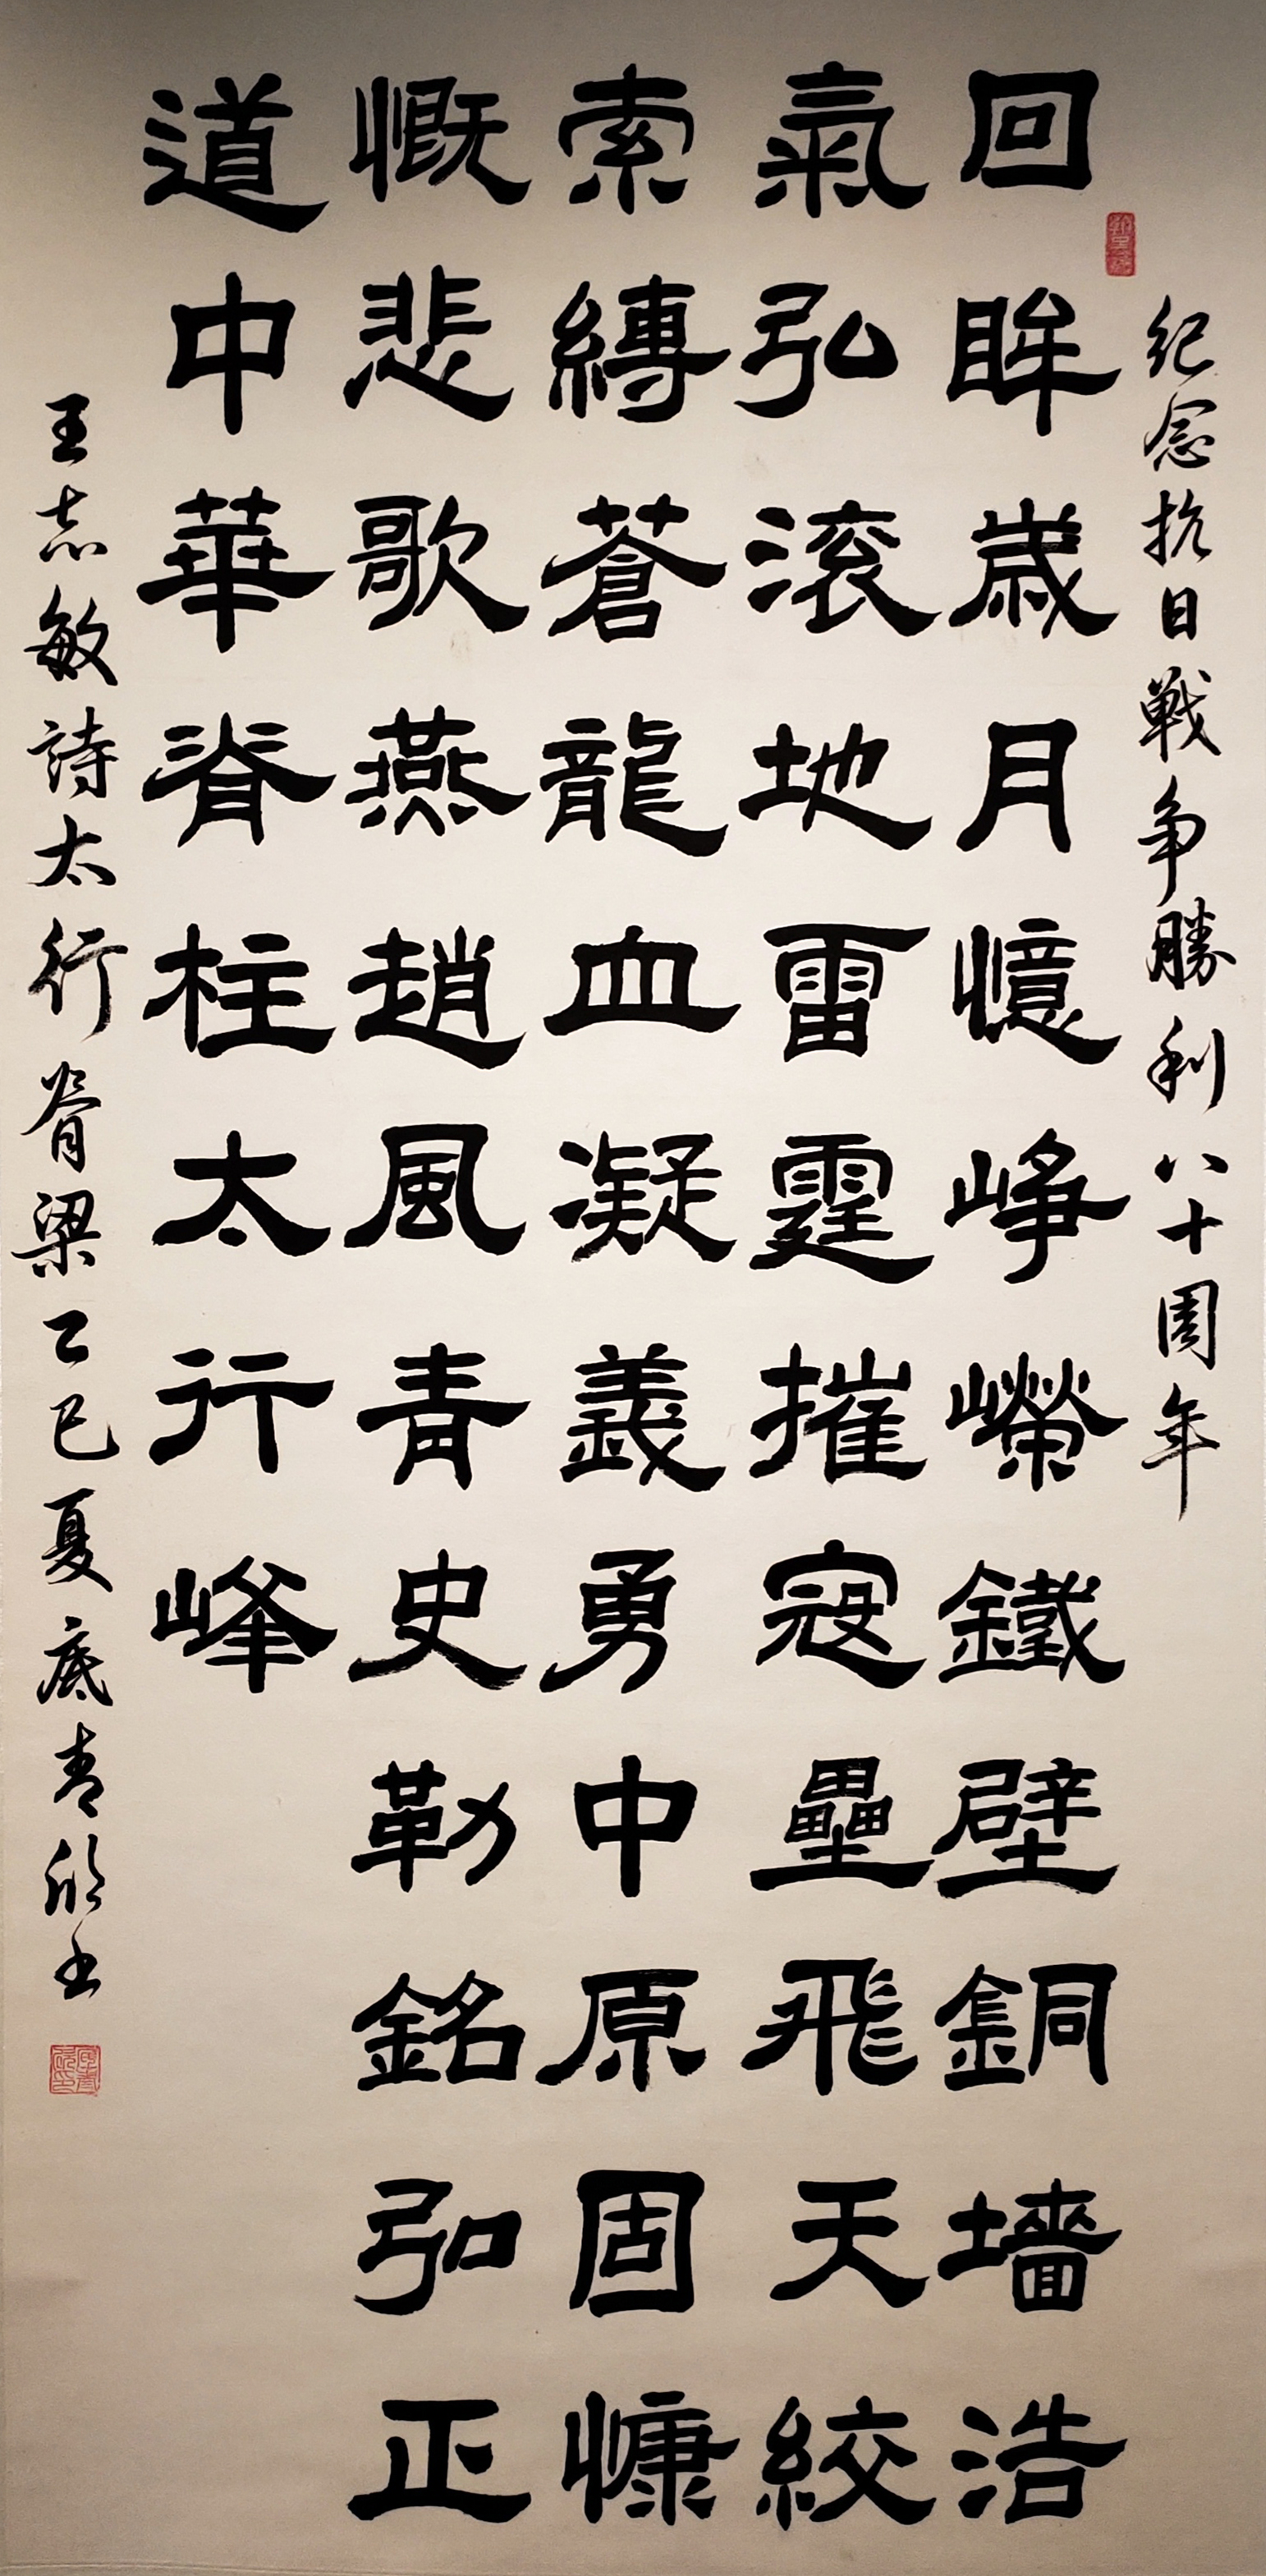 纪念抗日戰争勝利八十周年
回眸歲月憶崢嶸鐵壁銅墻浩
氣弘滚地雷霆摧寇壘飛天絞
索縛蒼龍血凝義勇中原固慷
慨悲歌燕趙風青史勒銘弘正
道中華脊柱太行峰
王志敏詩太行脊梁乙巳夏底青欣书